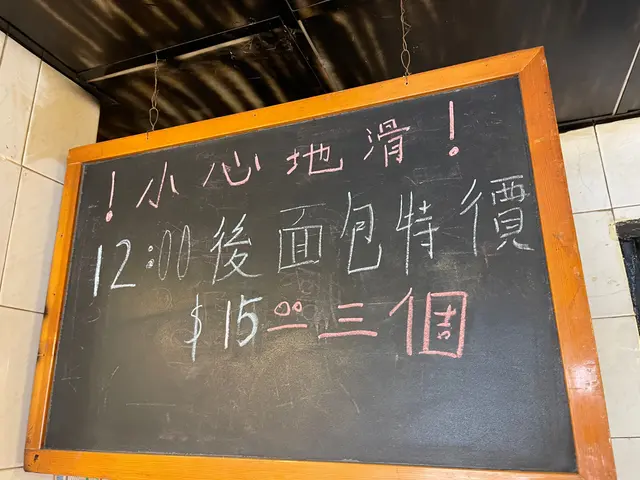 ！小心地滑！
12:00後面包特價
$15.00三個